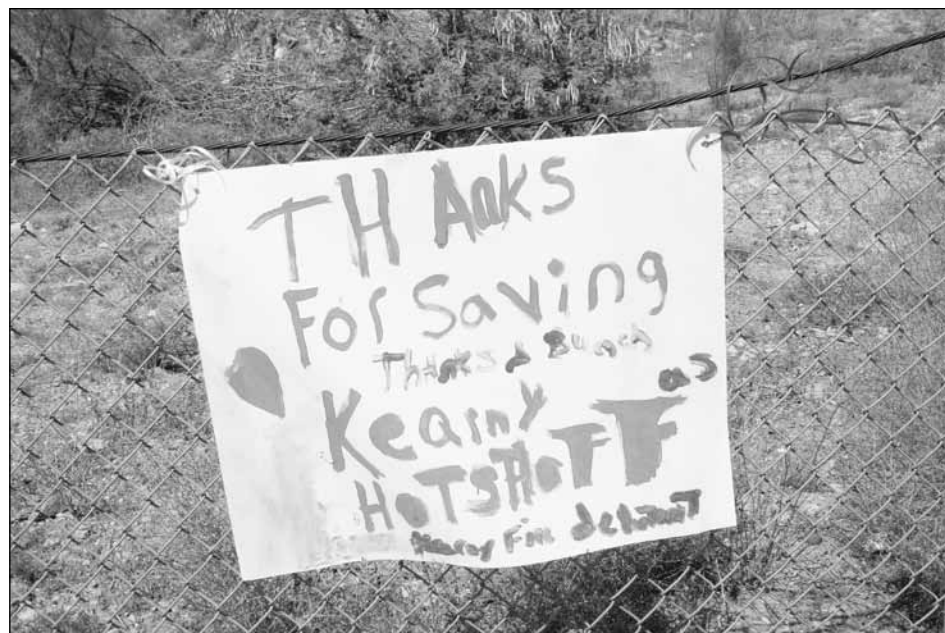 THAnKS
For Saving
Thanks a Bunch
Kearny
as
HOTSHOTT
Kearny Fire